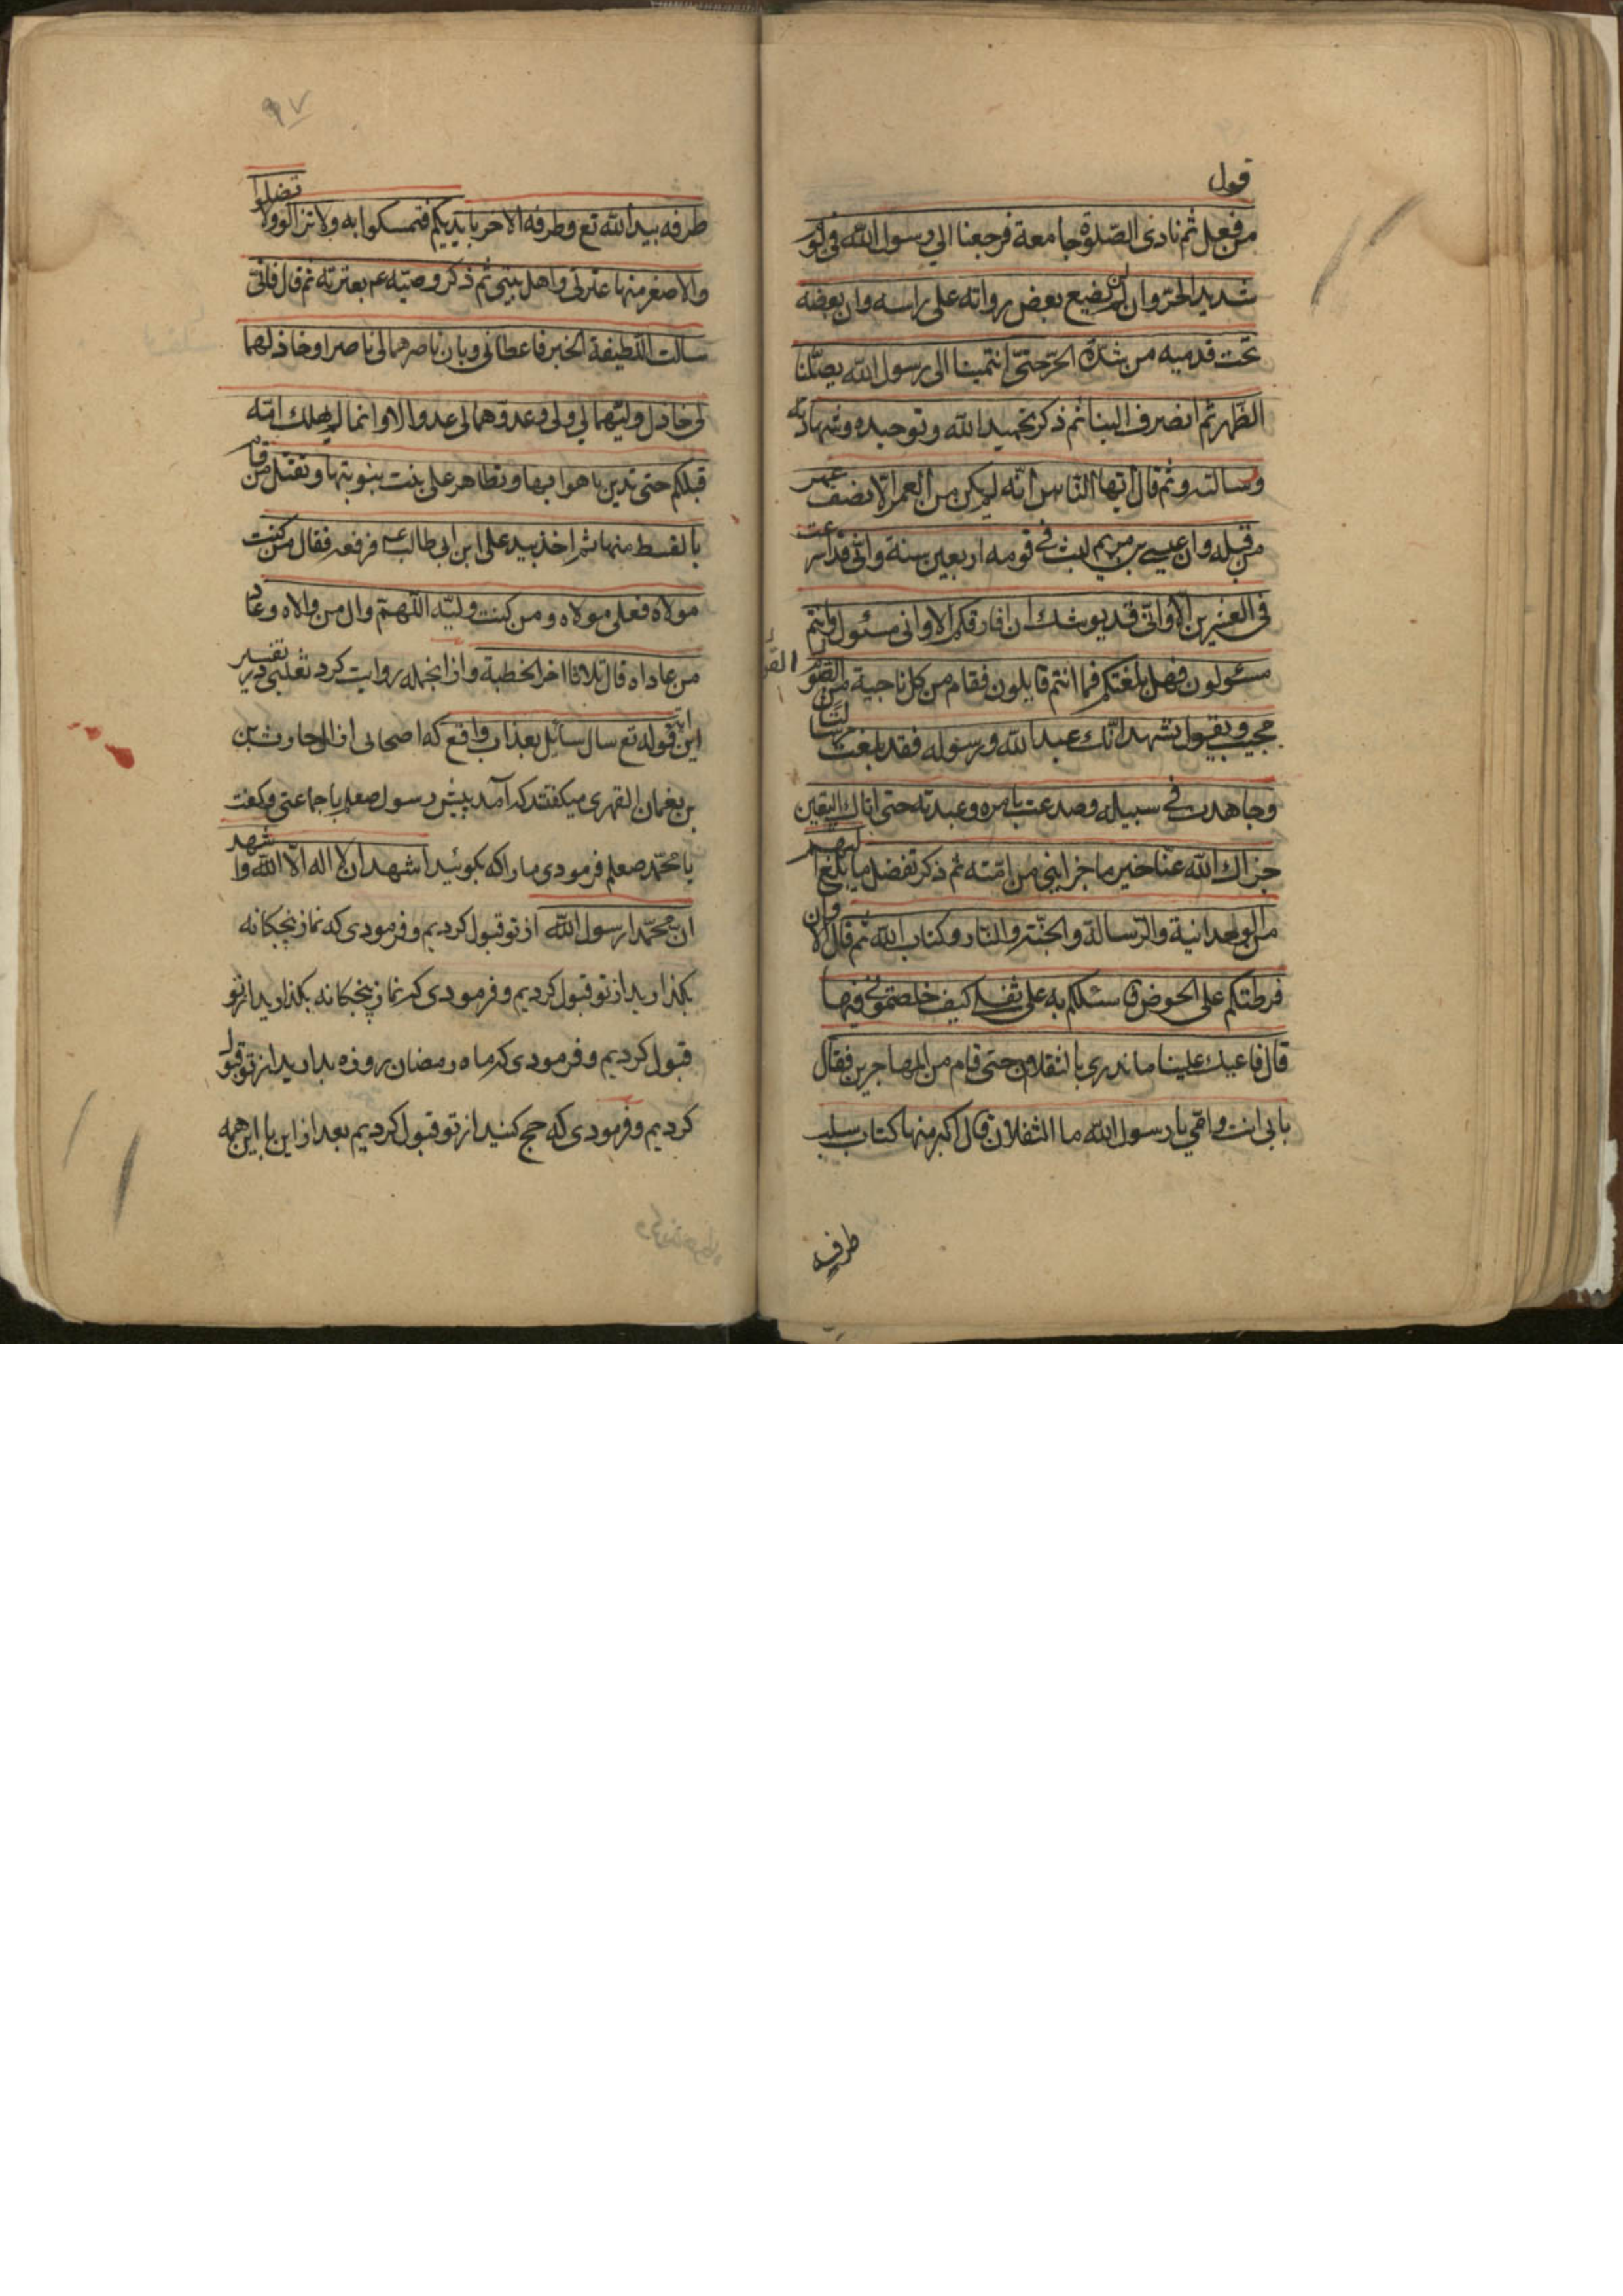 قول
من فعل ثم نادى الصّلوة جامعة فرجعنا الي رسول اللّه في يوم
شديد الحرّ وان لم يضع بعض روائه على راسه وان بعضه
تحت قدميه من شدّة الحرّ حتىّ انتمينا الى رسول اللّه يصلّنا
الظهر ثم انصرف الينا ثم ذكر تحميد اللّه و توحيده وشهادته
ورسالته و ثم قال ايّها النّاس انّه لم يكن من العمر الّا نصف عمر
من قبله وان عيسى بن مريم لبث في قومه اربعين سنة وانّي قد اسرعت
في العشرين الا وانّي قد يوشك ان افارقكم الا وانى مسئول وانتم
مسئولون فهل بلغتكم فما انتم قايلون فقام من كل ناحية من القوم
مجيب و يقول نشهد انّك عبد اللّه و رسوله فقد بلغت
وجاهدت في سبيله وصدعت بامره وعبدته حتى اتاك اليقين
جزاك اللّه عنّا خير ما جزا نبي من امّته ثم ذكر تفضل ما بلغ اليهم
من الوحدانية والرّسالة والجنّة والنّار و كتاب اللّه ثم قال الا وان
فرطتكم على الحوض سئلكم به على ثقلي كيف خلفتموني فيها
قال فاعيك علينا ما ندرى بالثقلان حتى قام من المهاجرين فقال
بابى انت وامّي يا رسول اللّه ما الثقلان قال اكبر منها كتاب
طرفه
٩٧
طرفه بيد اللّه تع وطرفه الاخر بايديكم فتمسكوا به ولا تزالوا ولا تضلوا
والاصغر منها عترتى واهل بيتى ثم ذكر وصيّته عم بعترته ثم قال فانّي
سالت اللّطيفة الخبير فاعطانى وبان ناصرهما لى ناصر او خاذلهما
لى خاذل وليّهما لي ولى وعدوهما لى عدو الا وانما لم يهلك امّة
قبلكم حتى تدين باهوايها وتظاهر على بنت بنوبتها وتقتل من قام
بالقسط منها ثم اخذ بيد على ابن ابى طالب عم فرفعه فقال من كنت
مولاه فعلى مولاه و من كنت وليّه اللّهمّ وال من والاه وعاد
من عاداه قال ثلاثا اخر الخطبة و از انجمله روايت كرد ثعلبى در تفسير
اين اية قوله تع سال سائل بعذاب واقع كه اصحابى از الحارث بن
بن نعمان القهرى ميكفتند كه آمد پيش رسول صعلم با جماعتى و كفت
يا محمّد صعلم فرمودى ما را كه بكوئيد اشهد ان لا اله الّا اللّه و اشهد
ان محمّدا رسول اللّه از تو قبول كرديم و فرمودى كه نماز پنجكانه
بكذاريد از تو قبول كرديم و فرمودى كه نماز پنجكانه بكذاريد از تو
قبول كرديم و فرمودى كه ماه رمضان روزه بداريد از تو قبول
كرديم و فرمودى كه حج كنيد از تو قبول كرديم بعد از اين با اين همه